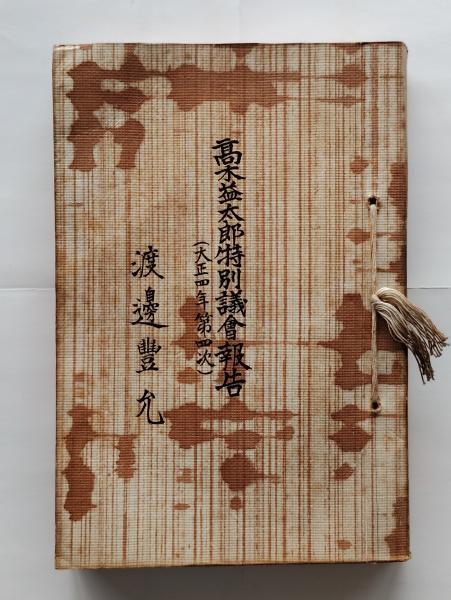 髙木益太郎特別議會報告
(大正四年第四次)
渡邊豐允